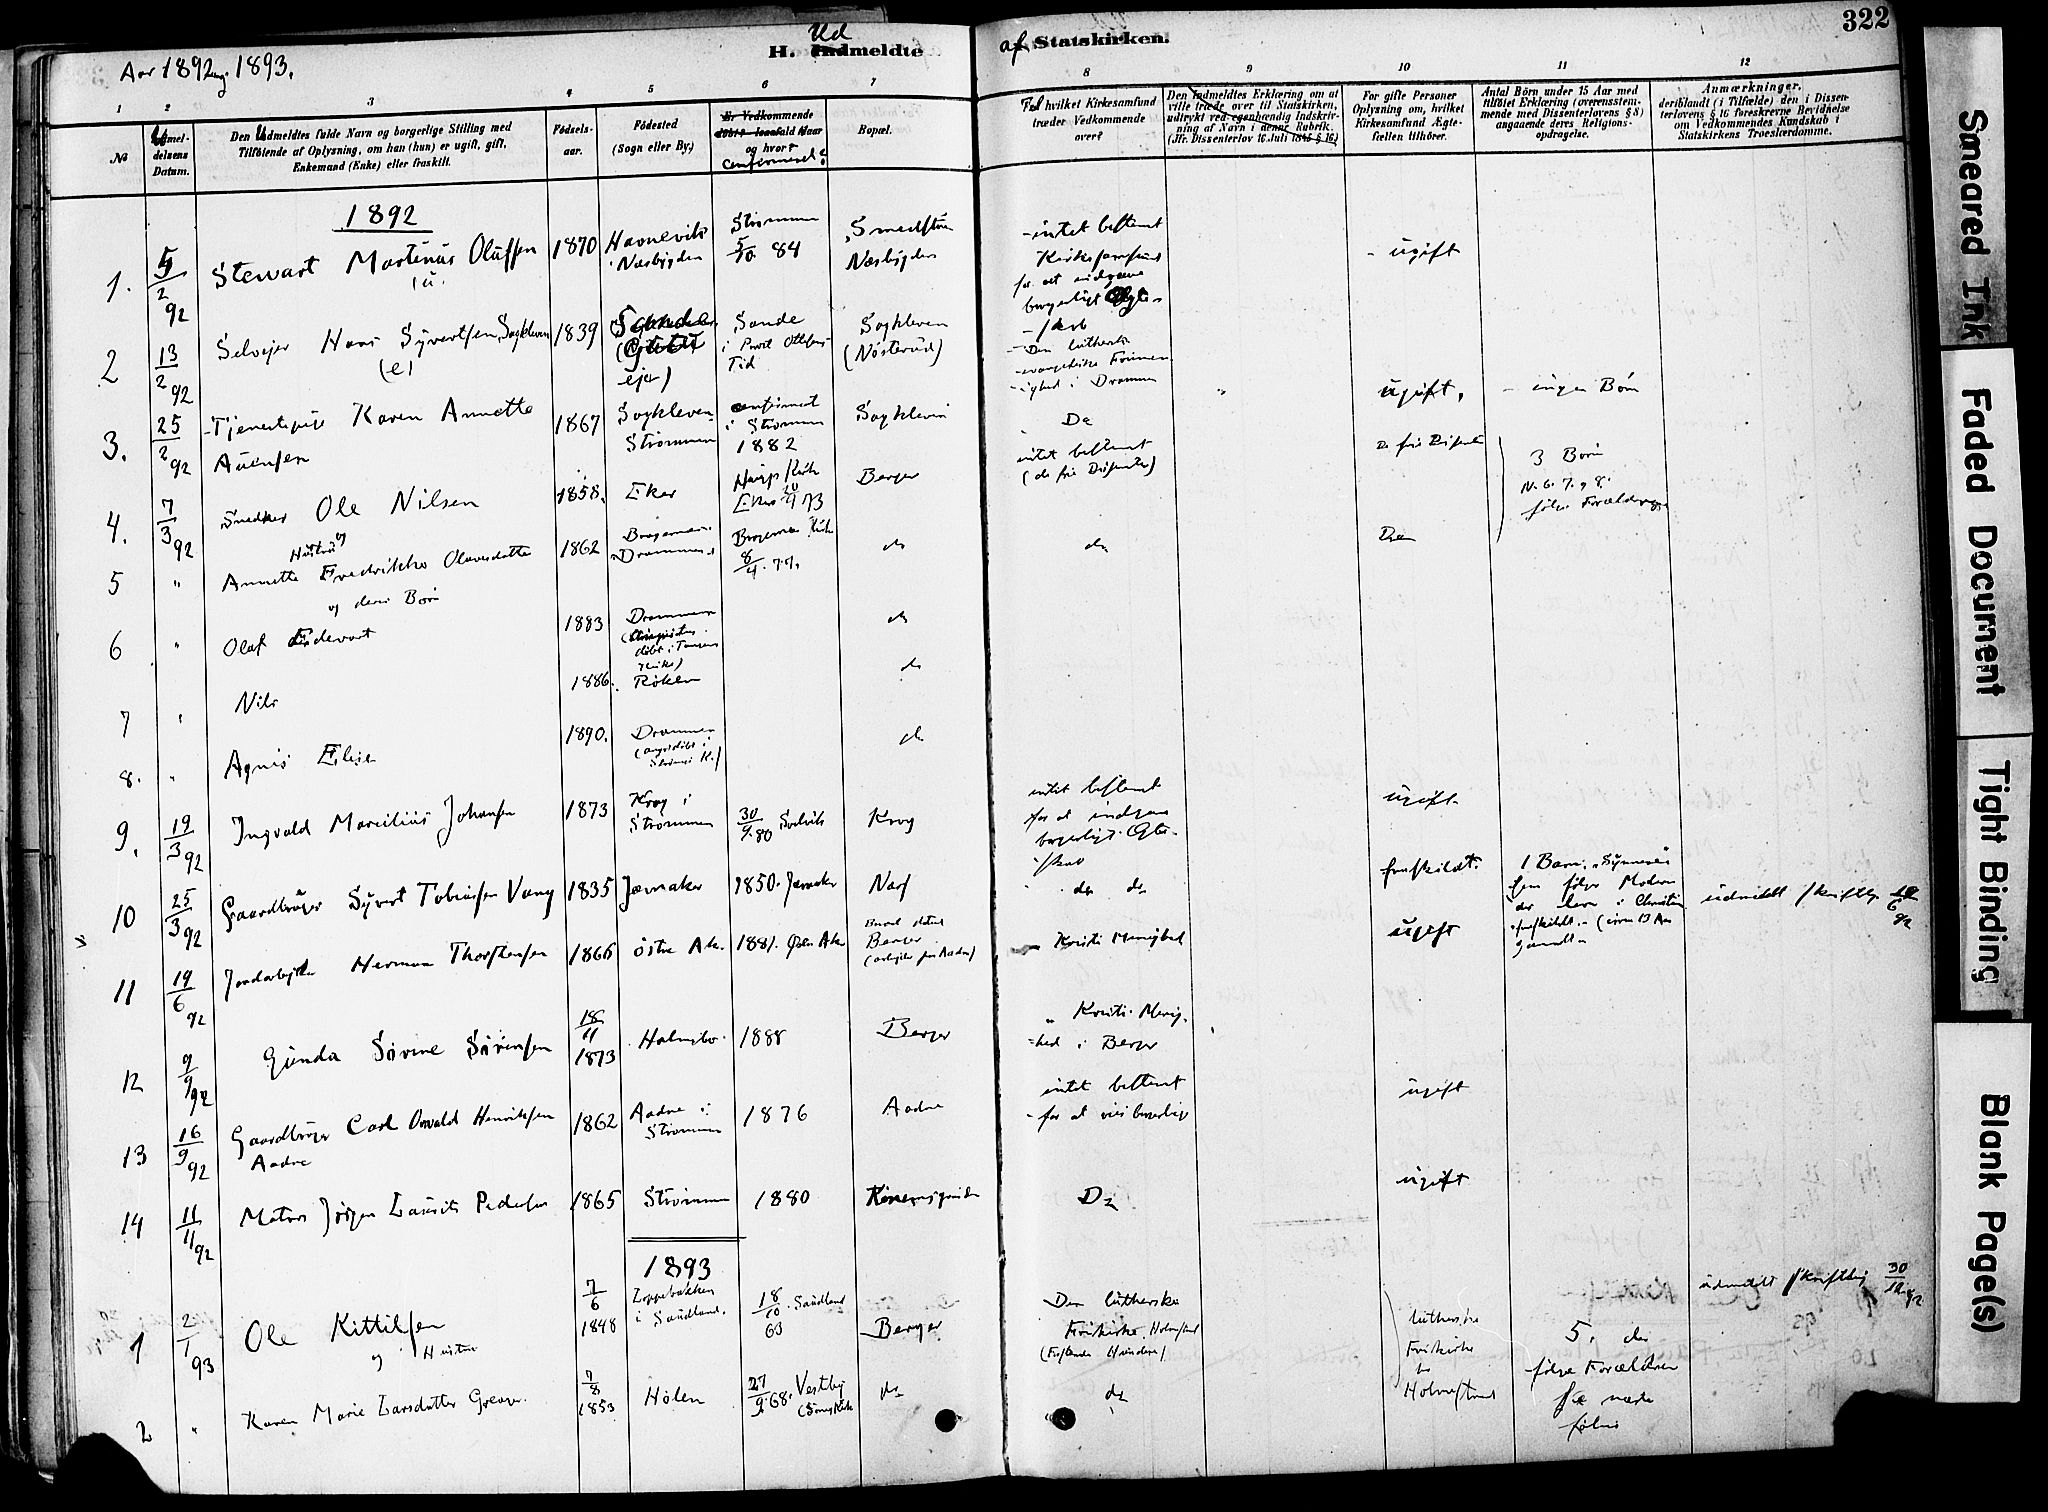 322
Aar 1892 og 1893.
H. Udmeldte af Statskirken.
1 2 3 4 5 6 7 8 9 10 11 12
No
Udmeldelsens Datum.
Den Udmeldtes fulde Navn og borgerlige Stilling med
Tilføiende af Oplysning, om han (hun) er ugift, gift,
Enkemand (Enke) eller fraskilt.
Fødsels-
aar.
Fødested
(Sogn eller By.)
Er Vedkommende
døbt i saafald Naar
og hvor?
Confirmeret?
Bopæl.
Til hvilket Kirkesamfund
træder Vedkommende
over?
Den Indmeldtes Erklæring om at
ville træde over til Statskirken,
udtrykt ved egenhændig Indskriv-
ning af Navn i denne Rubrik.
(Jfr. Dissenterlov 16. Juli 1845 § 16)
For gifte Personer
Oplysning om, hvilket
Kirkesamfund Ægte-
fællen tilhører.
Antal Børn under 15 Aar med
tilføiet Erklæring (overensstem-
mende med Dissenterlovens § 8)
angaaende deres Religions-
opdragelse.
Anmærkninger,
deriblandt (i Tilfælde) den i Dissen-
terlovens § 16 foreskrevne Bevidnelse
om Vedkommendes Kundskab i
Statskirkens Troeslærdomme.
1892
1. 5/2 92 Stewart Martinus Olufsen 1870 Havnevik Næsbygden Strømmen 5/10 84 Næsbygden -intet bestemt Kirkesamfund for at indgaae borgerligt Ægte-skab - ugift
2 13/2 92 Selveier Hans Syvertsen Sogkleven (e) 1839 Sande i Provst Tid Sogkleven (Nøsterud) - Den lutherske evangeliske Frimenighed i Drammen ugift. - ingen Børn
3. 25/2 92 Tjenestepige Karen Annette 1867 Sogkleven Strømmen confirmert i Strømmen 1882 Sogkleven Do
4. 7/3 92 Snedker Ole Nilsen 1858. Eker Berger intet bestemt (de frie Dissenter) De frie Dissenter 3 Børn N. 6. 7. og 8. følge Forældrene
Hustru
5 " Annette Fredrikke Olavesdatter 1862 Bragernes Drammen Bragernes Kirke do do Do
og deres Børn
6 " Olaf Edevart 1883 Drammen do
7 " Nils 1886. Røken do
8. " Agnes Elise 1890. Drammen do
9. 19/3 92 Ingvald Marcilius Johansen 1873 Krog i Strømmen 30/9. 80 Krog intet bestemt for at indgaae borgerligt Ægte-skab ugift
10 25/3 92 Gaardbruger Syvert Tobiassen Vang 1835 Jevnaker 1850. Jevnaker Næs do do fraskildt. 1 Barn. som følger Moderen der lever i Christiania (circa 13 Aar gammelt - udmeldt skriftlig
11 19/6 92 Jordarbejder Herman Thorstensen 1866 Østre Ak. 1881. Berger Kristi Menighed ugift
12 9/9 92 Gunda Sørine Sørensen 18/11 1873 Holmsbo. 1888 Berger " Kristi Menig-hed i Berger
13 16/9 92 Gaardbruger Carl Osvald Henriksen Aadne 1862 Aadne i Strømmen 1876 Aadne intet bestemt - for at vies borgerlig ugift
14 11/11 92 Matros Jørgen Laurits Pedersen 1865 Strømmen 1880 Do ugift
1893
1 2/1 93 Ole Kittilsen 7/6 1848 i Saudland. 18/10 63 Saudland Berger Den lutherske Frikirke, Holmestrand lutherske Frikirke Holmestrand 5. der følge Forældrene Se næste følio udmeldt skriftlig 30/12 92
og Hustru
2 " Karen Marie Larsdatter 7/8 1853 Hølen 27/9. 68. Vestby do do
Smeared Ink
Faded Document
Tight Binding
Blank Page(s)